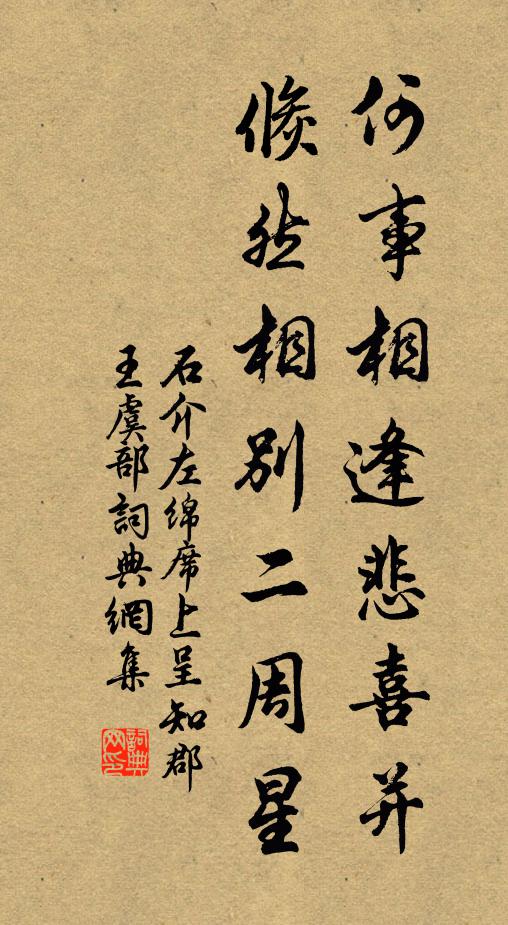 何事相逢悲喜并
倏然相別二周星
石介左綿席上呈知郡
王虞部詞典網集
詞典網印